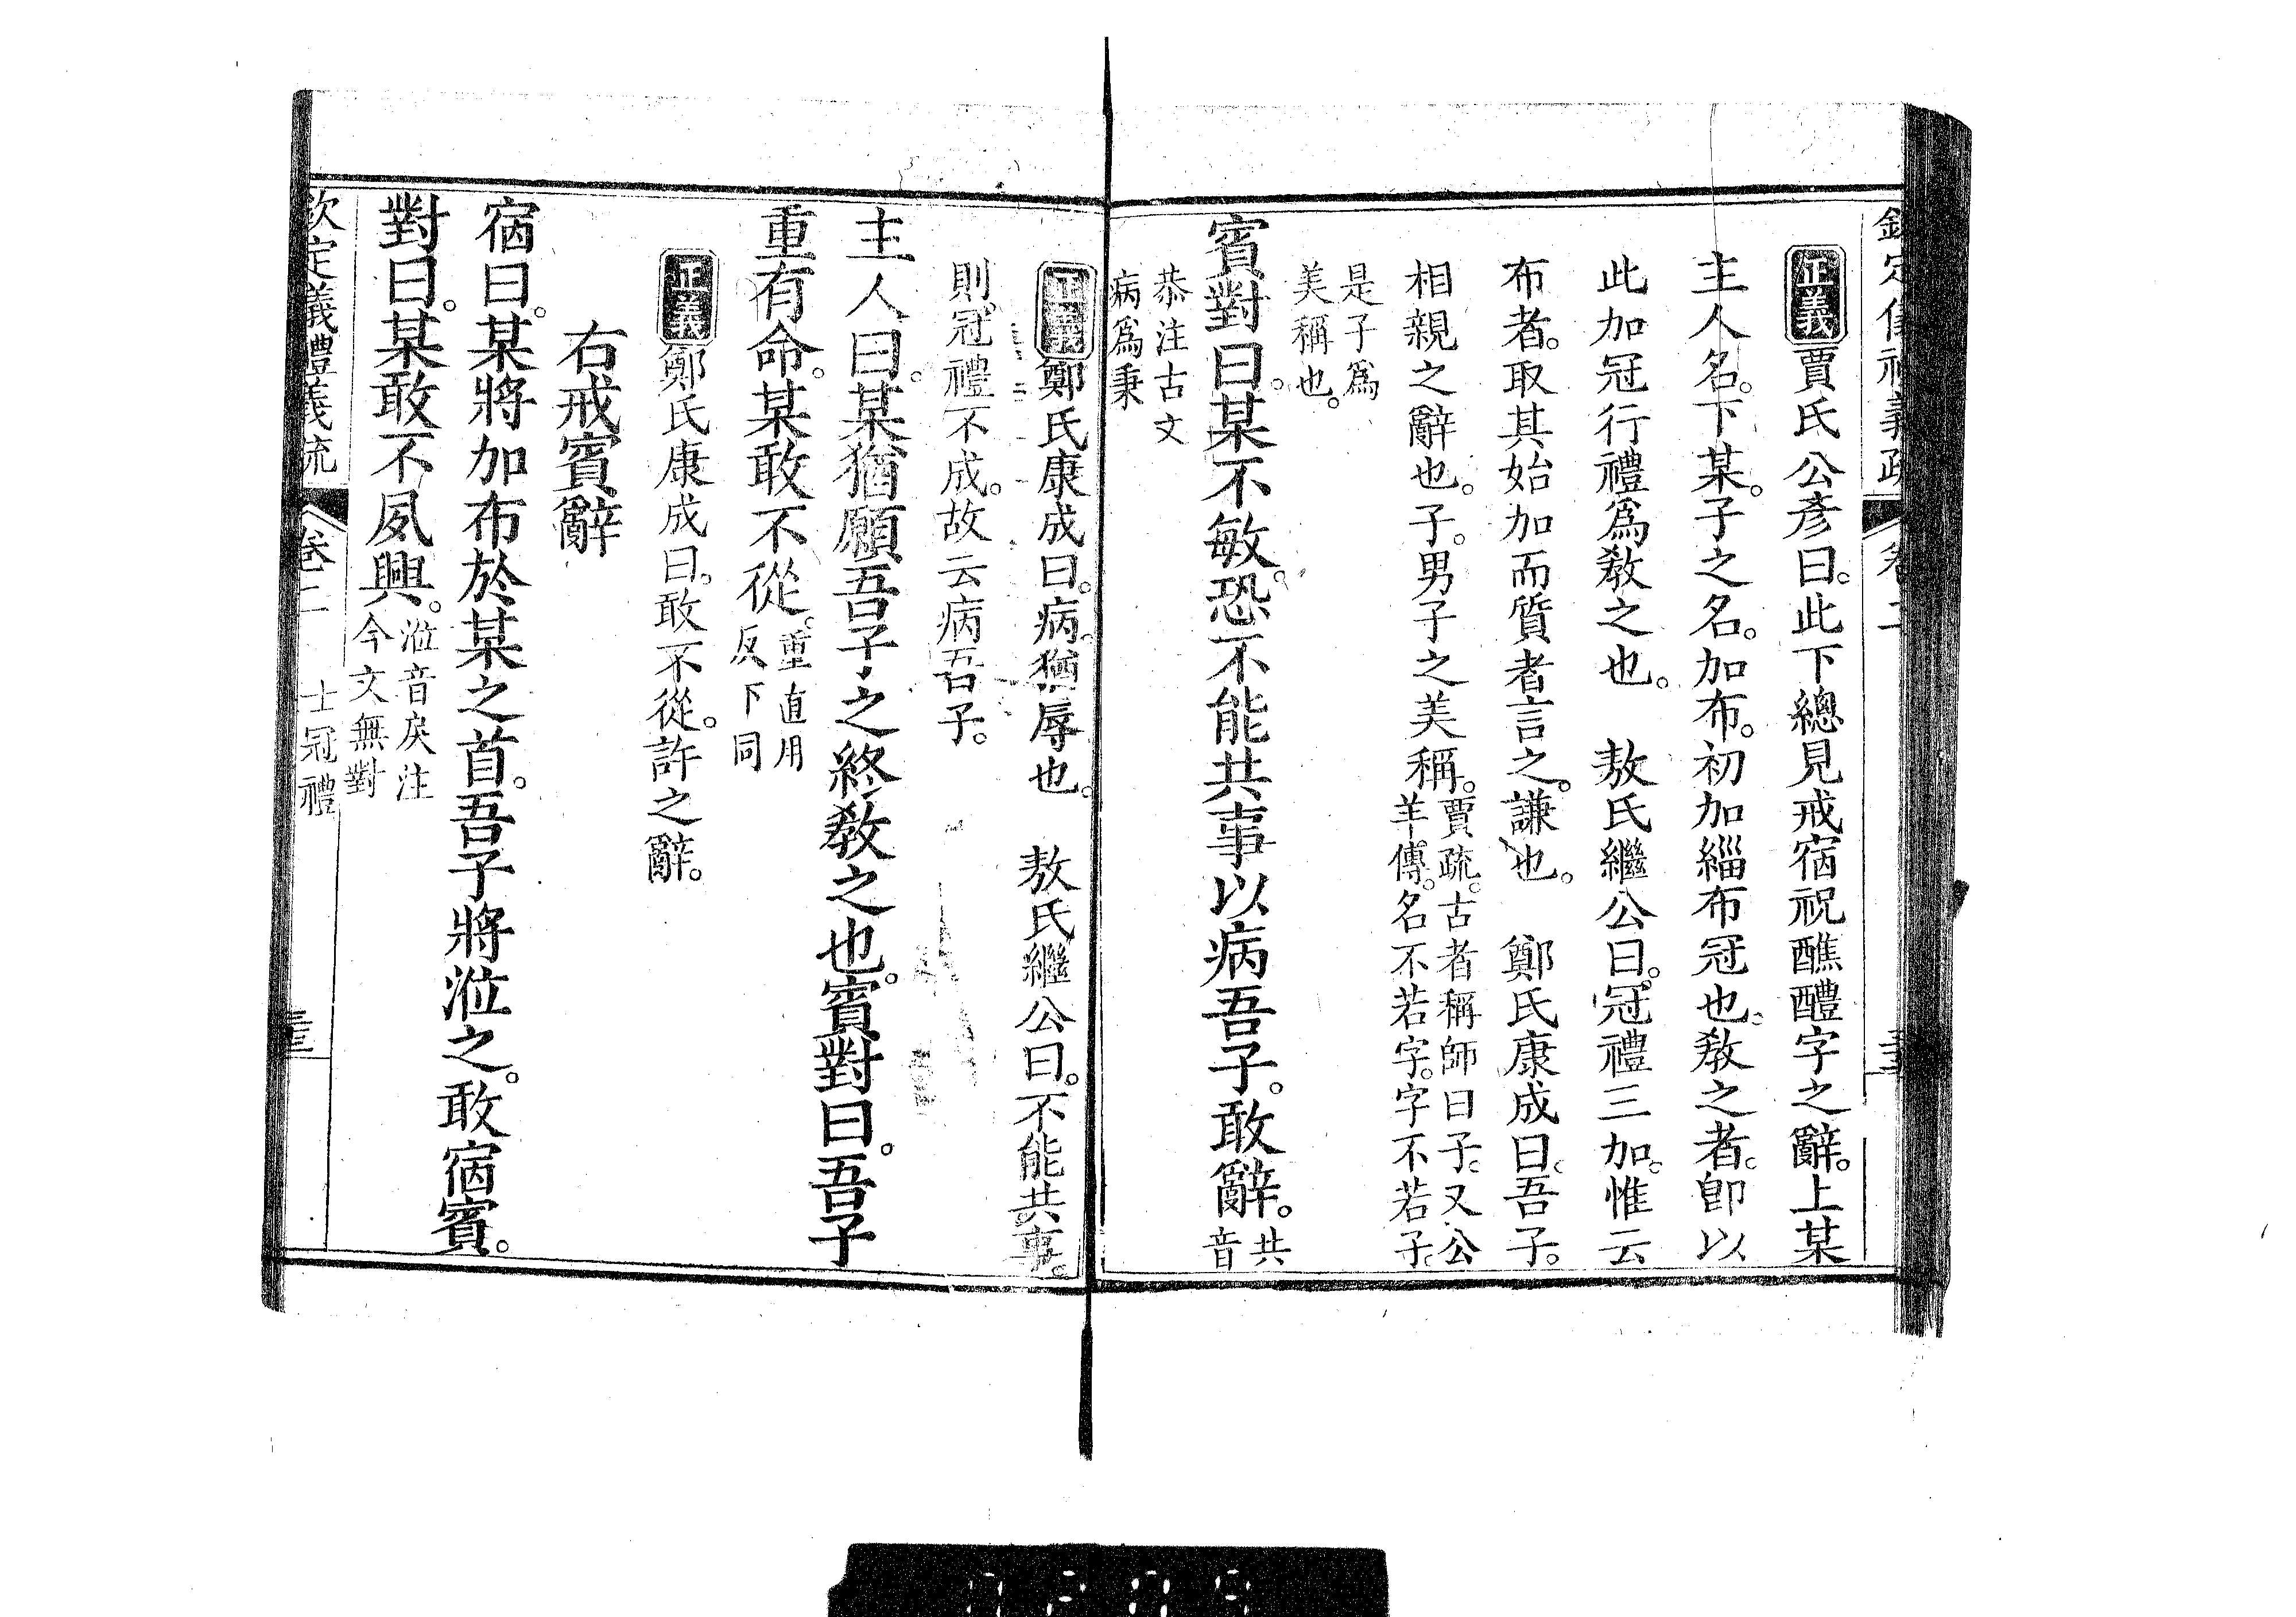 欽定儀禮義疏 卷二
正義 賈氏公彥曰。此下總見戒宿祝醮醴字之辭。上某
主人名。下某。子之名。加布。初加緇布冠也。教之者。卽以
此加冠行禮爲教之也。 敖氏繼公曰。冠禮三加。惟云
布者。取其始加而質者言之。謙也。 鄭氏康成曰。吾子。
相親之辭也。子。男子之美稱。賈疏。古者稱師曰子。又公
羊傳。名不若字。字不若子。
是子爲
美稱也。
賓對曰。某不敏。恐不能共事以病吾子。敢辭。共
音
恭注古文
病爲秉
正義 鄭氏康成曰。病。猶辱也。 敖氏繼公曰。不能共事。
則冠禮不成。故云病吾子。
主人曰。某猶願吾子之終教之也。賓對曰。吾子
重有命。某敢不從。重直用
反下同
正義 鄭氏康成曰。敢不從。許之辭。
右戒賓辭
宿曰。某將加布於某之首。吾子將涖之。敢宿賓。
對曰。某敢不夙興。涖音戾注
今文無對
欽定儀禮義疏 卷二 士冠禮